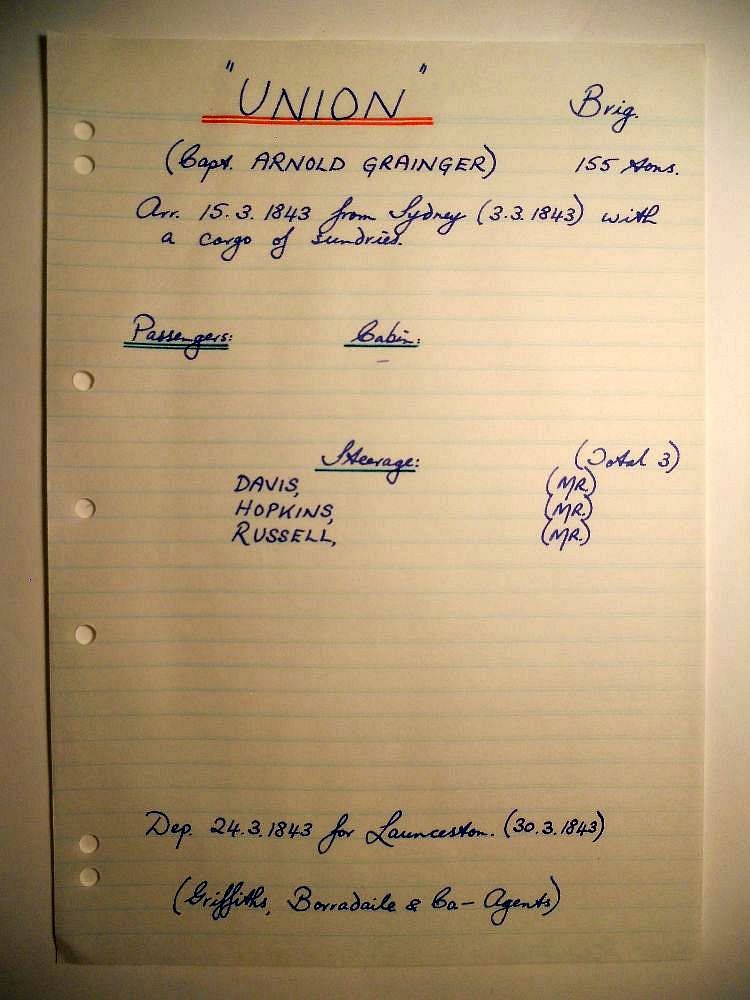 "UNION" Brig.
(Capt. ARNOLD GRAINGER) 155 tons.
Arr. 15.3.1843 from Sydney (3.3.1843) with
a cargo of sundries.
Passengers: Cabin:
–
Steerage: (Total 3)
DAVIS, (MR.)
HOPKINS, (MR.)
RUSSELL, (MR.)
Dep. 24.3.1843 for Launceston. (30.3.1843)
(Griffiths, Borradaile & Co – Agents)